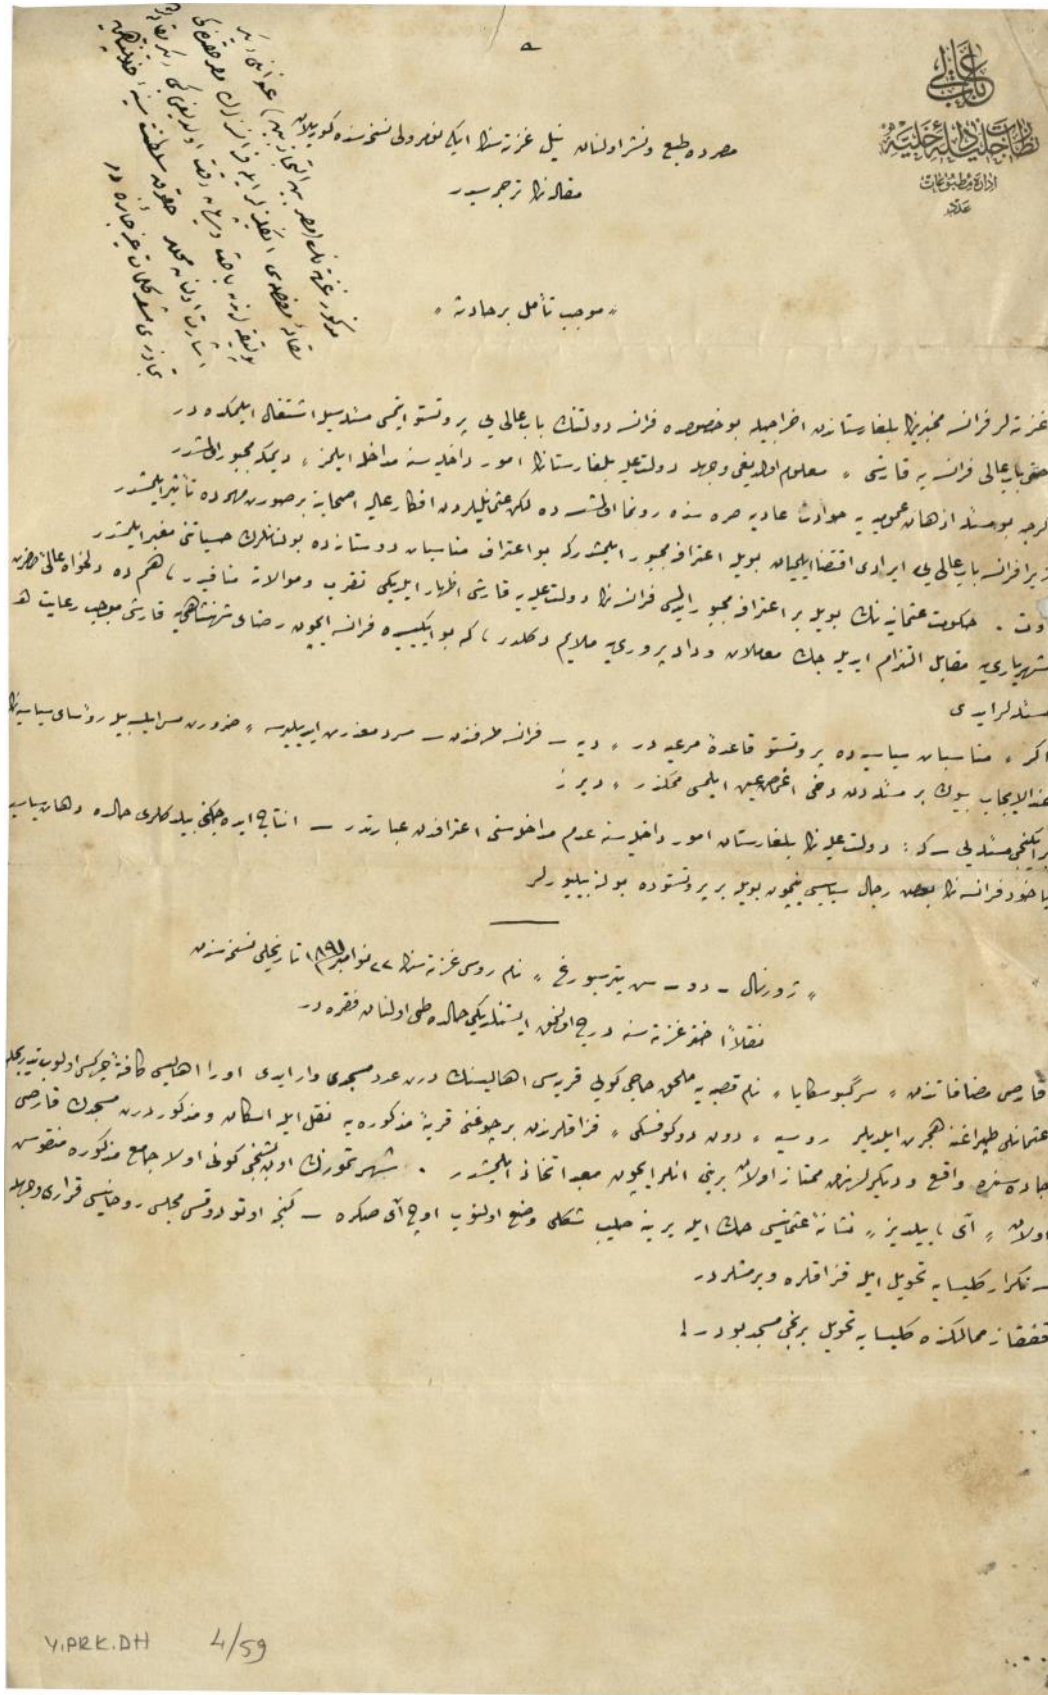 باب عالی
نظارت جلیلهٔ داخلیه
ادارهٔ مطبوعات
عدد
مصرده طبع و نشر اولنان نیل غزته سنك ایكی نومرولی نسخه سنده كوریلان
مقاله نك ترجمه سیدر
« موجب تأمل بر حادثه »
غزته لر فرانسه مخبرینك بلغارستاندن اخراجیله بو خصوصده فرانسه دولتنك باب عالی یی پروتستو ایتمسی مسئله سیله اشتغال ایلمكده در
حتی باب عالی فرانسه یه قارشی « معلوم اولدیغی وجهله دولت علیه بلغارستانك امور داخلیه سنه مداخله ایلمز » دیمكه مجبور اولمشدر
كرچه بو مسئله اذهان عمومیه یه حوادث عادیه صره سنده رونما اولمشسه ده لكن عثمانلیلردن افكار عالیه اصحابنه بر صورت مهمه ده تأثیر ایلمشدر
زیرا فرانسه باب عالی یی ایرادی اقتضا ایلمیان بویله اعترافه مجبور ایلمشدر كه بو اعتراف مناسبات دوستانه ده بولنانلرك حسیاتنی مغبر ایلمشدر
اوت . حكومت عثمانیه نك بویله بر اعترافه مجبور ایدلمسی فرانسه نك دولت علیه یه قارشی اظهار ایلدیكی تقرب و موالاته منافیدر ، هم ده دلخواه عالئ حضرت
شهریاری یه مقابل التزام ایدیله جك معاملات ودادپروری یه ملایم دكلدر ، كه بو ایكیسیده فرانسه ایچون رضای شهنشاهی یه قارشی موجب رعایت
مسئله لر ایدی
اكر « مناسبات سیاسیه ده پروتستو قاعدهٔ مرعیه در » دیه – فرانسه طرفندن – سرد معذرت ایدیلیرسه « ضرورت مس ایلسه بیله رؤسای سیاسیه نك
عند الایجاب بیوك بر مسئله دن دخی اغماض عین ایلمسی ممكندر » دیرز
بر ایكنجی مسئله یی – كه : دولت علیه نك بلغارستان امور داخلیه سنه عدم مداخله سنی اعترافدن عبارتدر – انتاج ایده جكنی بیلدكلری حالده دهات سیاسیه
یاخود فرانسه نك بعض رجال سیاسیسی نیچون بویله بر پروتستوده بولنه بیلیورلر
« ژورنال – دو – سن پترسبورغ » نام روسی غزته سنك ٢٢ نوامبر ١٨٩١ تاریخلی نسخه سندن
نقلاً اختر غزته سنه درج اولنمق ایستنلدیكی حالده طی اولنان فقره در
قارص مضافاتندن « سرگیوسكایا » نام قصبه یه ملحق حاجی كوی قریه سی اهالیسنك درت عدد مسجدی وار ایدی اورا اهالیسی كافةً چركس اولوب تدریجله
عثمانلی طپراغنه هجرت ایلدیلر روسیه « دون دوكوفسكی » قزاقلرندن بر چوغنی قریهٔ مذكوره یه نقل ایله اسكان و مذكور درت مسجدك قارص
جاده سنده واقع و دیكرلرندن ممتاز اولان برینی انلر ایچون معبد اتخاذ ایلمشدر . شهر تموزك اون بشنجی كونی اولا جامع مذكورده منقوش
اولان « آی ، ییلدیز » نشانهٔ عثمانیسی حك ایله یرینه صلیب شكلی وضع اولنوب اوچ آی صكره – كنجه اورتودوقس مجلس روحانیسی قراری وجهله
– تكرار كلیسایه تحویل ایله قزاقلره ویرمشلردر
قفقاز ممالكنده كلیسایه تحویل برنجی مسجد بودر !
Y.PRK.DH 4/59